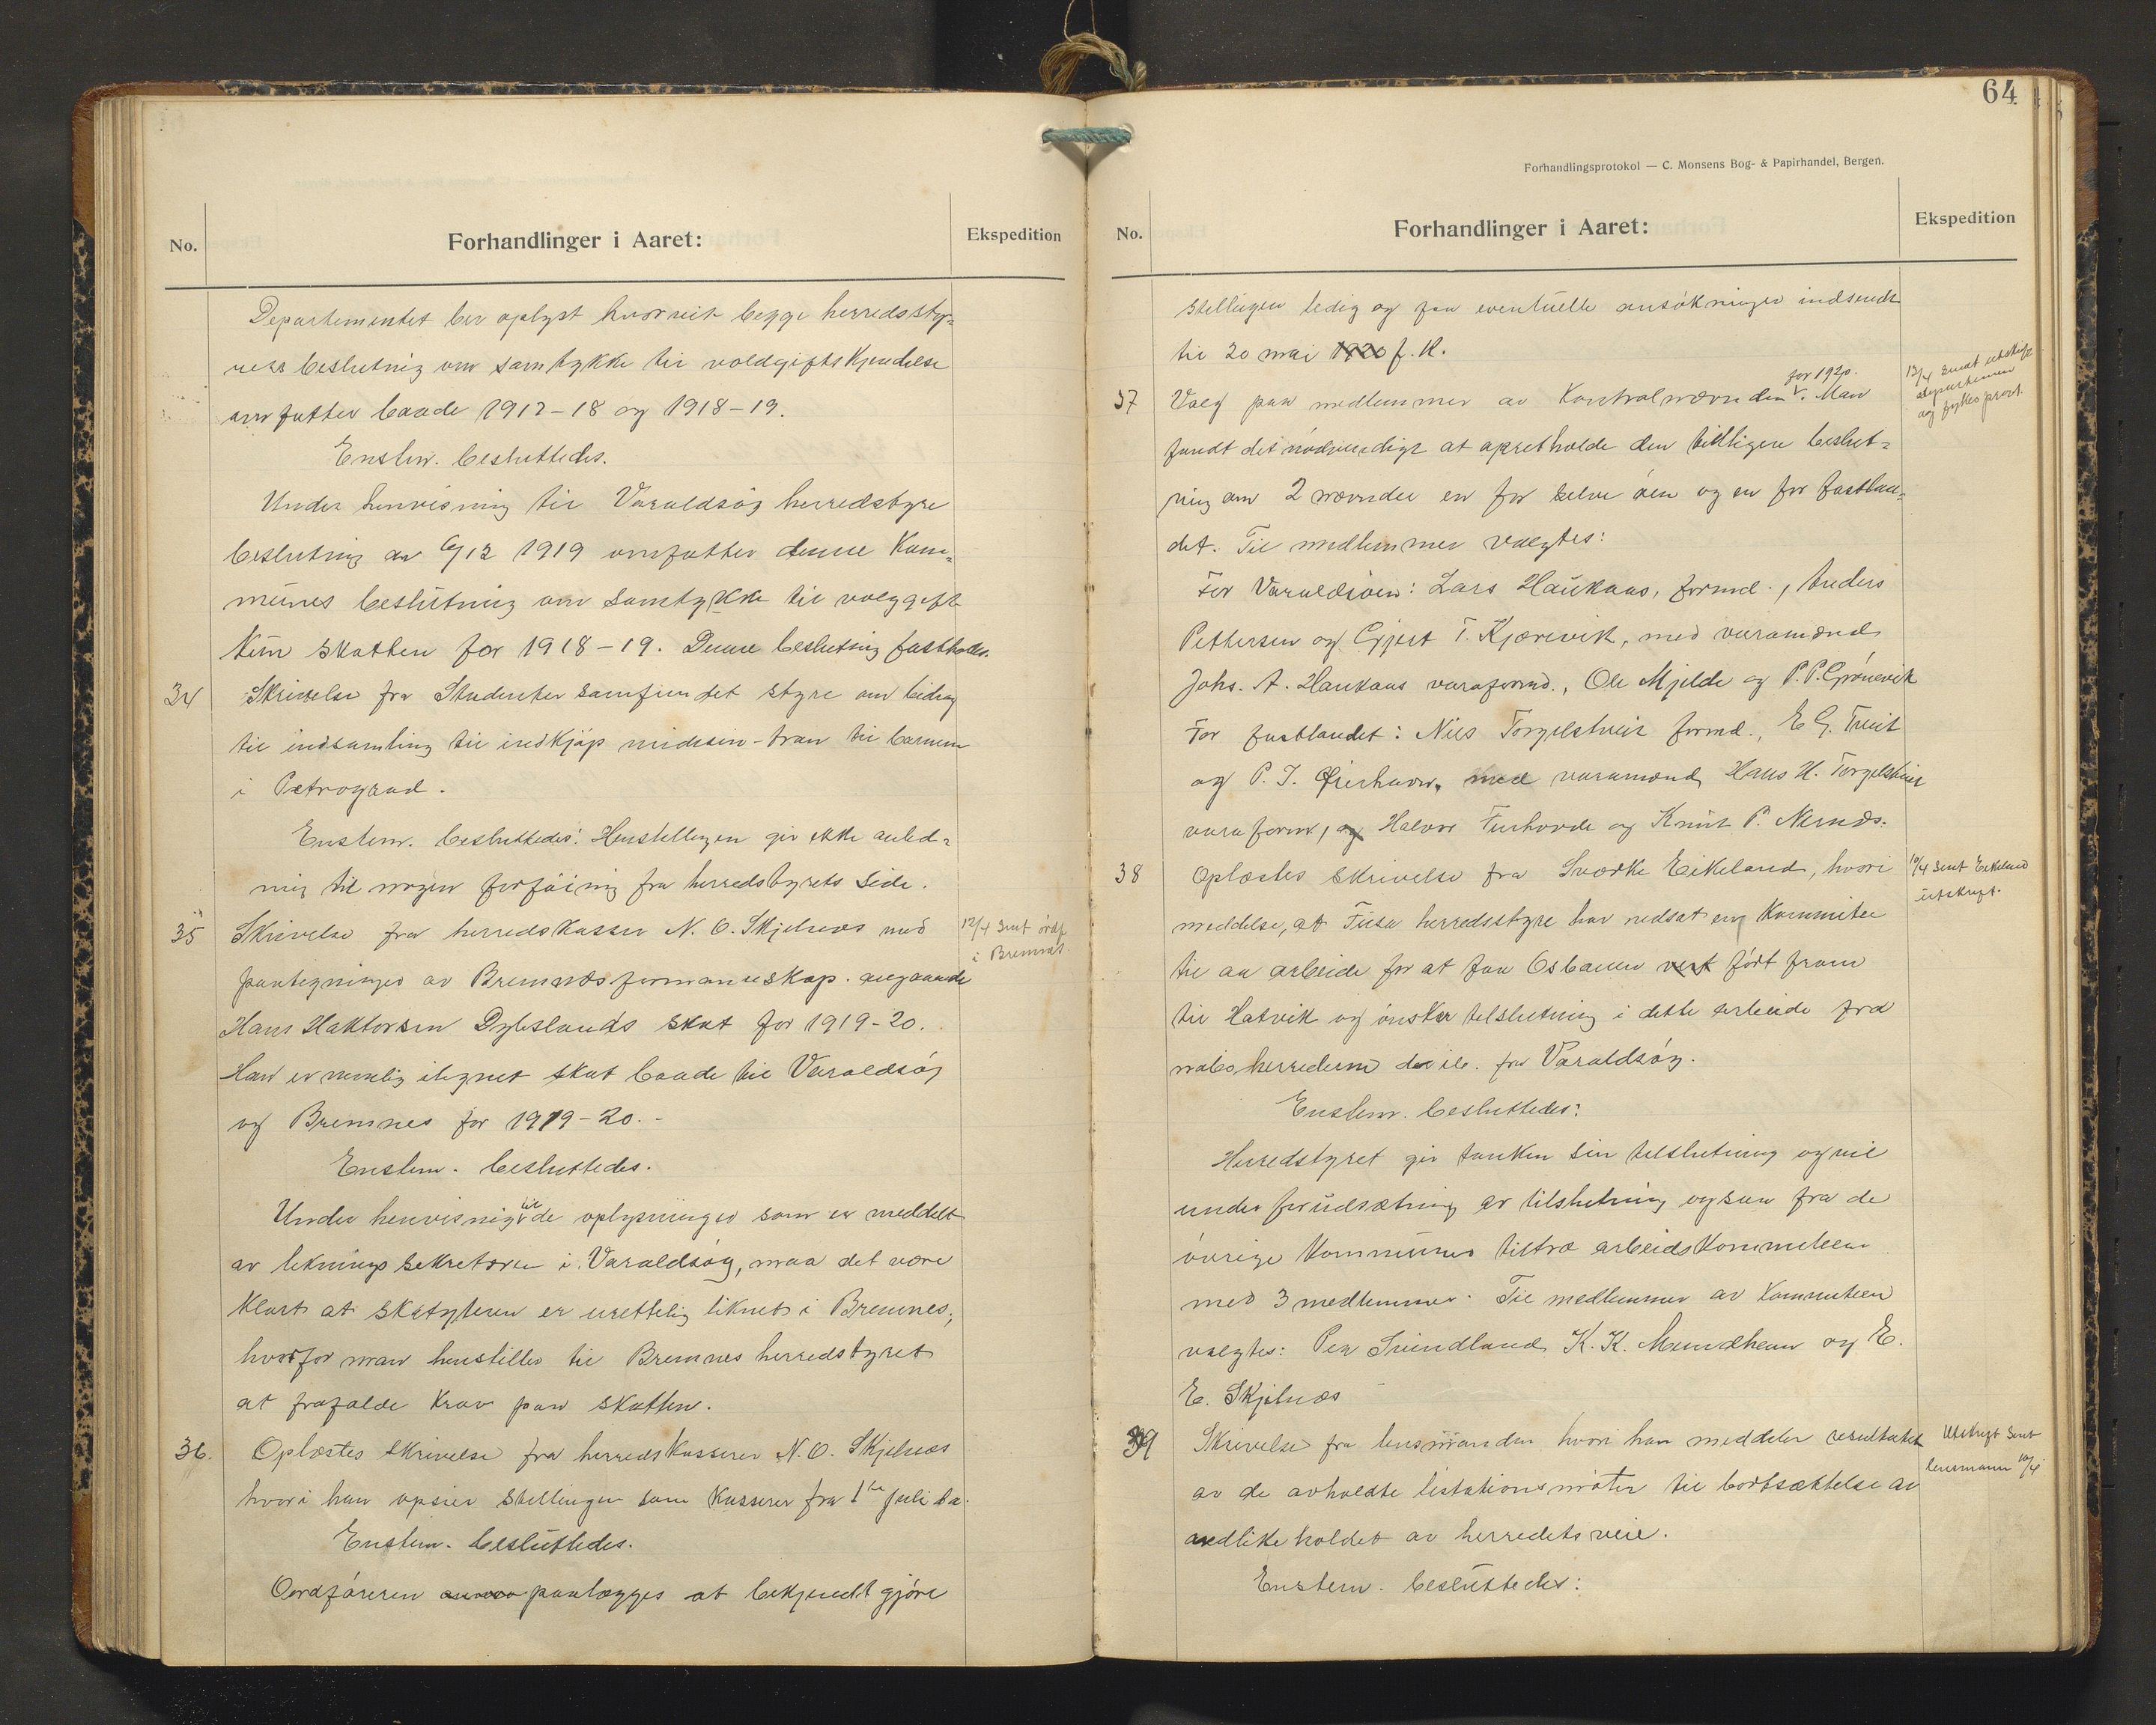 No.
Forhandlinger i Aaret:
Ekspedition
Departementet ber oplyst hvorvit begge herredssty-
rers beslutning om samtykke til voldgiftskjendelse
omfatter baade 1917-18 og 1918-19.
Enstem. besluttedes.
Under henvisning til Varaldsøy herredstyre
beslutning av 6/12 1919 omfatter denne Kom-
munes beslutning om samtykke til volggift
kun skatten for 1918-19. Denne beslutning fastholdes.
34
Skrivelse fra Studentersamfundet styre om bidrag
til indsamling til indkjøp midisin-tran til barnene
i Petrograd.
Enstem. besluttedes: Henstillingen gir ikke anled-
ning til nogen forføining fra herredstyrets side.
35
Skrivelse fra herredskasser N. O. Skjelnes med
paategninger av Bremnæs formannskap. angaaende
Hans Haktorsen Dybslands skat for 1919-20.
Han er nemlig ilignet skat baade til Varaldsøy
og Bremnes for 1919-20.-
12/4 Sent ordf
i Bremnes.
Enstem. besluttedes.
Under henvisning til de oplysninger som er meddelt
av leknings sekretæren i Varaldsøy, maa det være
klart at skatyteren er urettelig liknet i Bremnes;
hvorfor man henstiller til Bremnes herredstyret
at frafalde krav paa skatten.
36.
Oplæstes skrivelse fra herredskasserer N. O. Skjelnæs
hvori han opsier stillingen som kasserer fra 1ste juli d.a.
Enstem. besluttedes.
Ordføreren paalægges at bekjendtgjøre
64
Forhandlingsprotokol — C. Monsens Bog- & Papirhandel, Bergen.
No.
Forhandlinger i Aaret:
Ekspedition
stillingen ledig og faa eventuelle ansøkninger indsendt
til 20 mai 1920 f. K.
37
Valg paa medlemmer av Kontrolnævnden for 1920. Man
fandt det nødvendige at opretholde den tidligere beslut-
ning om 2 nævnder en for selve øen og en for fastlan-
det. Til medlemmer valgtes:
13/4 Sendt utskrift
departemen
og fylkes
For Varaldsøen: Lars Haukaas, formd., Anders
Pettersen og Gjert T. Kjærevik, med varamænd
Johs. A. Haukaas varaformd., Ole Mjelde og P. P. Grønevik
For fastlandet: Nils Torgelstveit formd., E. G. Tveit
og P. J. Øierhavn, med varamænd Hans H. Torgelstveit
varaform, og Halvor Furhovde og Knut P. Nernæs.
38
Oplæstes skrivelse fra Sværke Eikeland, hvori
meddelse, at Fusa herredsstyre har nedsat en kommitee
til aa arbeide for at faa Osbanen vert ført fram
til Hatvik og ønsker tilslutning i dette arbeide fra
naboherrederne deib. fra Varaldsøy.
10/4 sent Eikeland
utskrift.
Enstem. besluttedes:
Herredstyret gir tanken sin tilslutning og vil
under forudsætning av tilslutning ogsaa fra de
øvrige kommuner tiltræ arbeidskommiteen
med 3 medlemmer. Til medlemmer av kommiteen
valgtes: Per Svindland K. K. Mundheim og E.
E. Skjelnæs
39
Skrivelse fra lensmanden hvori han meddeler resultatet
av de avholdte lisitationsmøter til bortsættelse av
vedlikeholdet av herredets veie.
Utskrift sent
lensmann 10/4
Enstem. besluttedes: